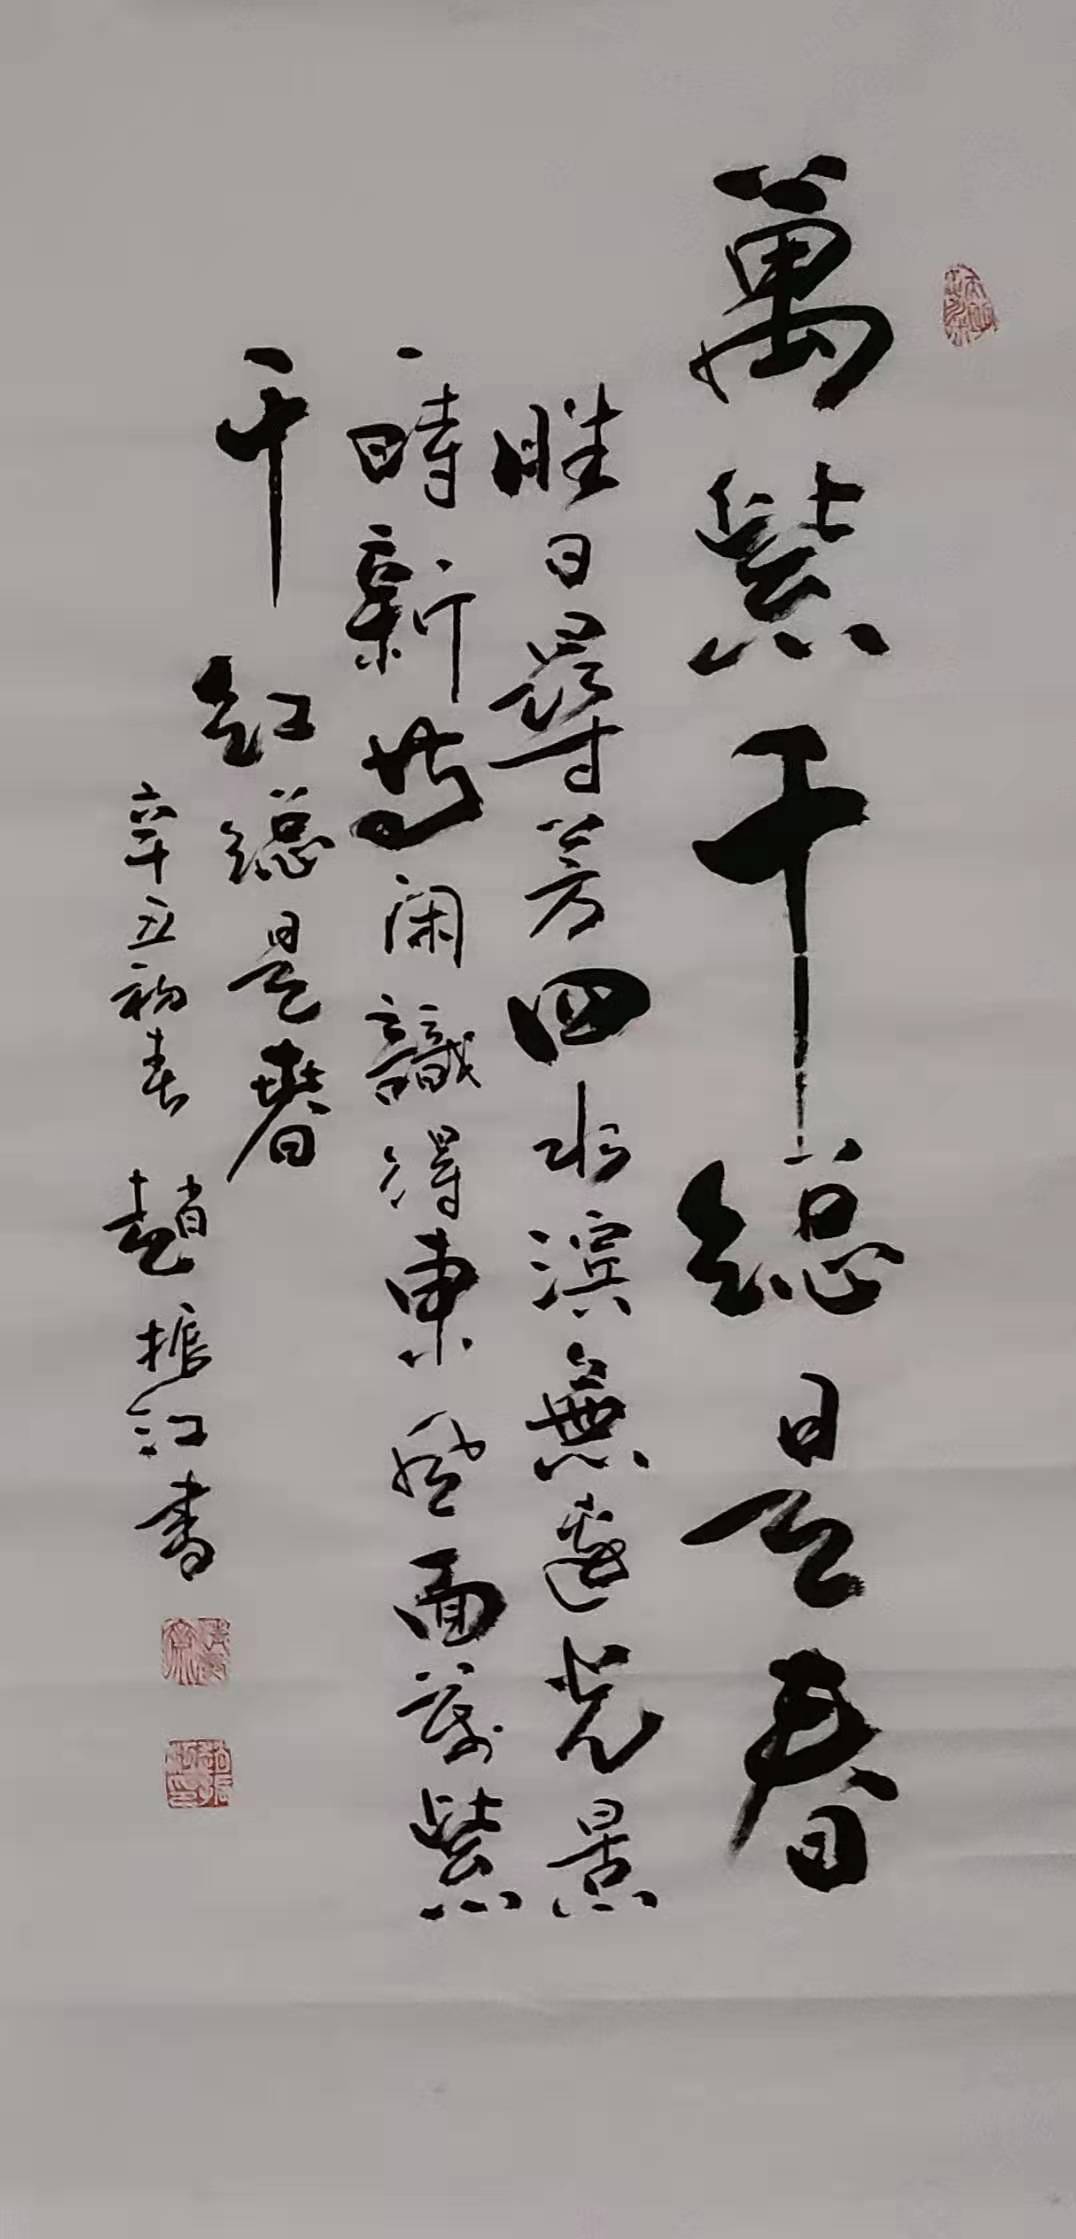 萬紫千總是春
胜日尋芳四水滨無邊光景
一時新等闲識得東風面萬紫
千紅總是春
辛丑初春 趙振江書